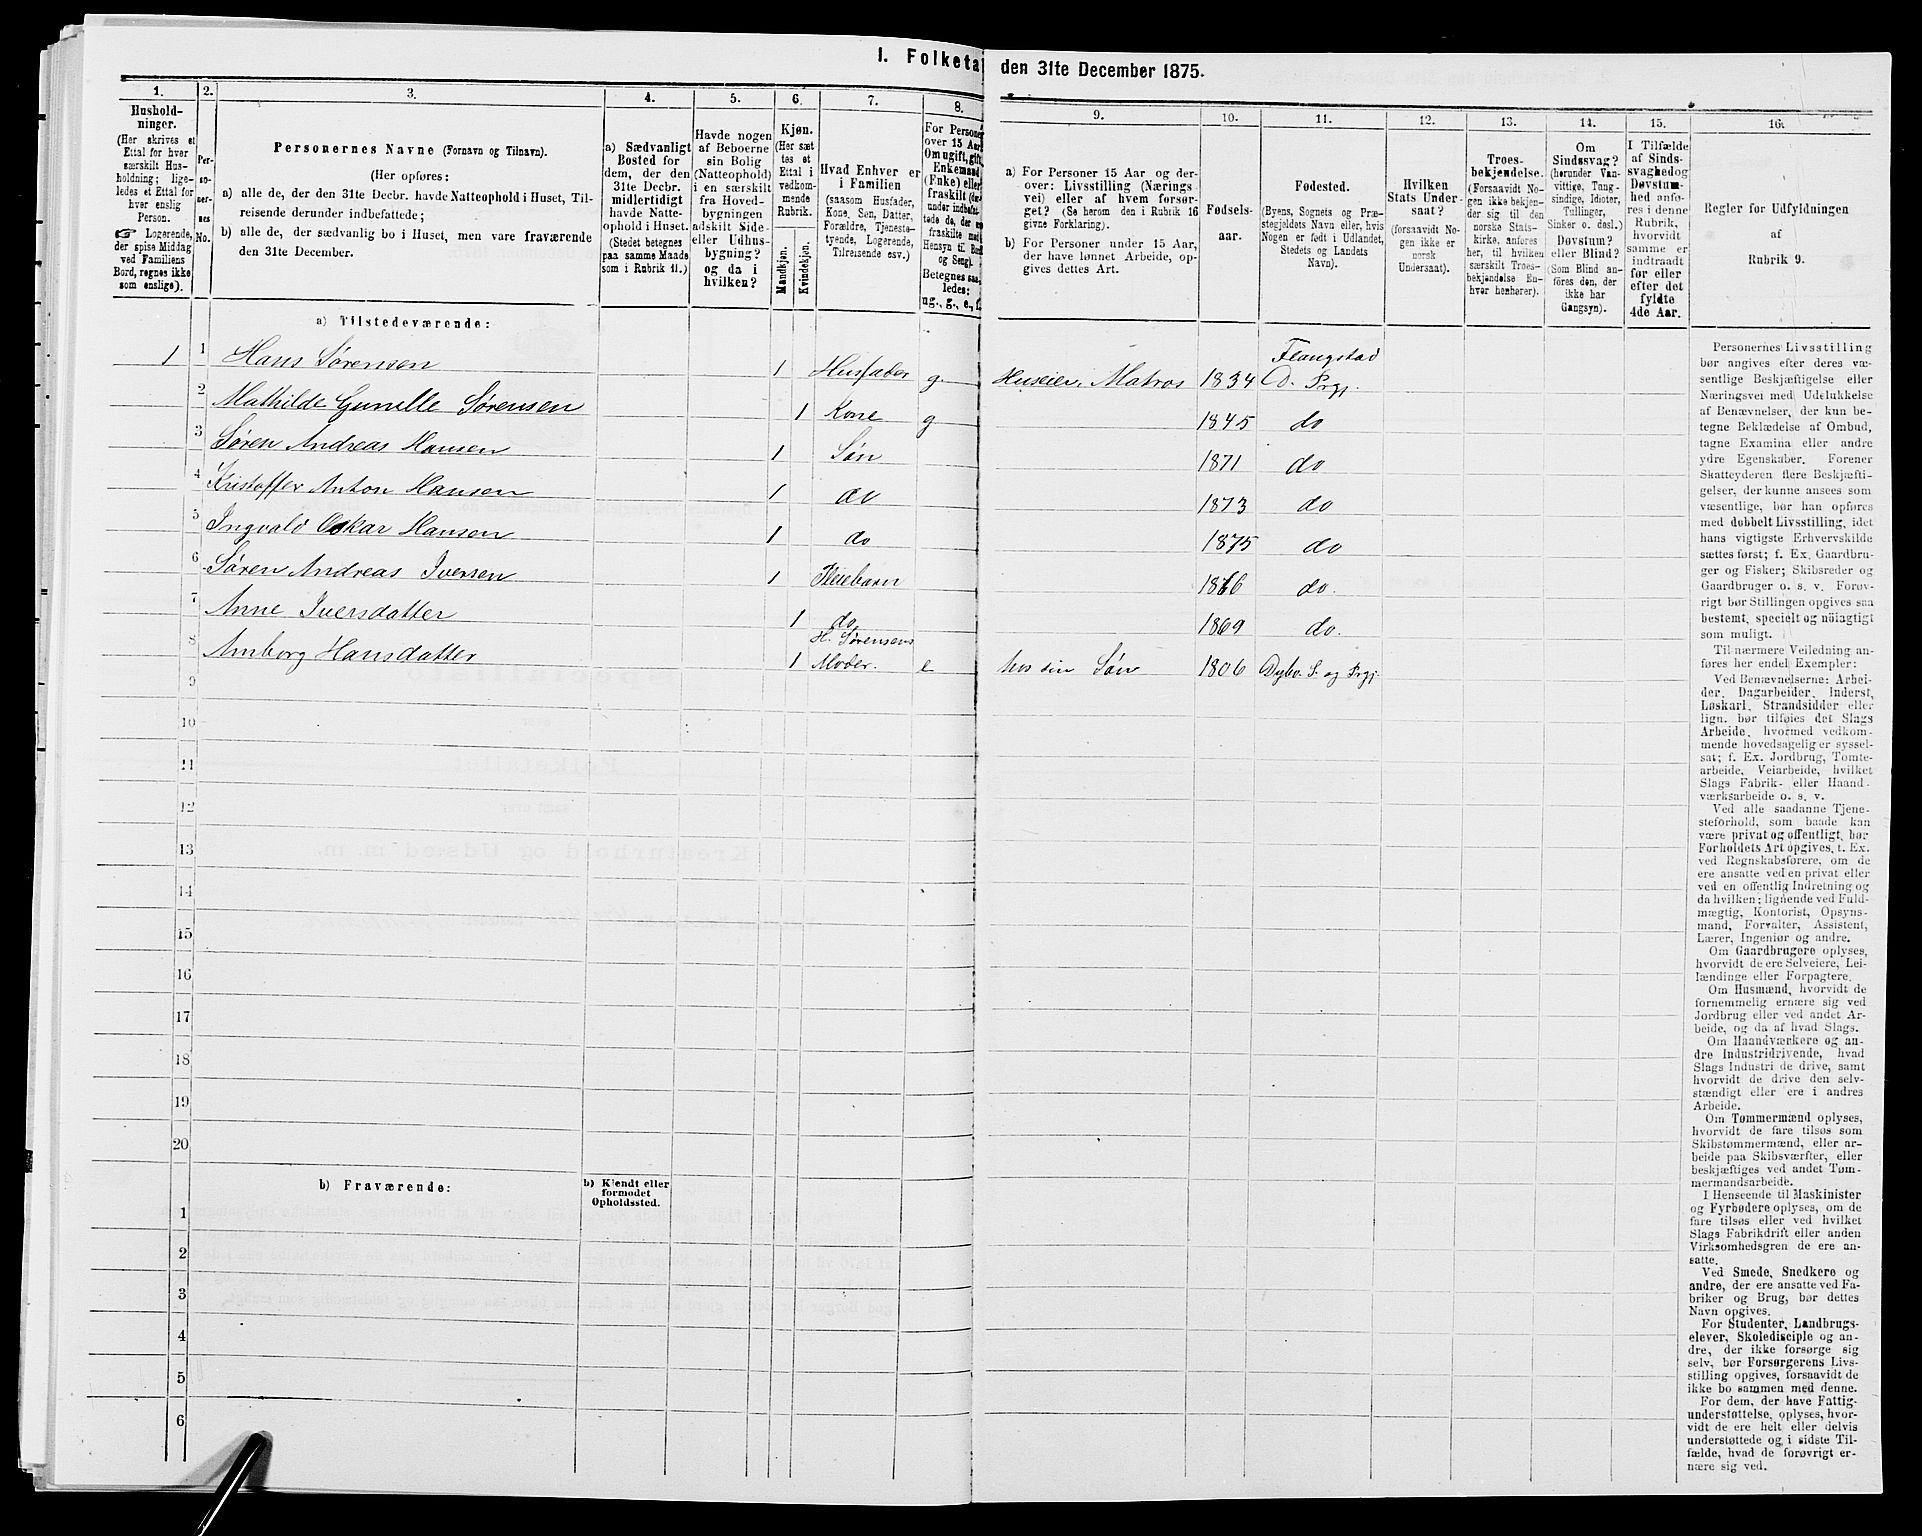 I. Folketa
den 31te December 1875.
1.
Hushold-
ninger.
(Her skrives et
Ettal for hver
særskilt Hus-
holdning; lige-
ledes et Ettal for
hver enslig
Person.
☞ Logerende,
der spise Middag
ved Familiens
Bord, regnes ikke
som enslige).
2.
Per-
so-
ner-
nes
No.
3.
Personernes Navne (Fornavn og Tilnavn).
(Her opføres:
a) alle de, der den 31te Decbr. havde Natteophold i Huset, Til-
reisende derunder indbefattede;
b) alle de, der sædvanlig bo i Huset, men vare fraværende
den 31te December.
4.
a) Sædvanligt
Bosted for
dem, der den
31te Decbr.
midlertidigt
havde Natte-
ophold i Huset.
(Stedet betegnes
paa samme Maade
som i Rubrik 11.)
5.
Havde nogen
af Beboerne
sin Bolig
(Natteophold)
i en særskilt
fra Hoved-
bygningen
adskilt Side-
eller Udhus-
bygning?
og da i
hvilken?
6.
Kjøn.
(Her sæt-
tes et
Ettal i
vedkom-
mende
Rubrik.
Mandkjøn.
Kvindekjøn.
7.
Hvad Enhver er
i Familien
(saasom Husfader,
Kone, Søn, Datter,
Forældre, Tjeneste-
tyende, Logerende,
Tilreisende osv.)
8.
For Persone
over 15 Aar
Om ugift, gift,
Enkemand
(Enke) eller
fraskilt (der-
under indbefat-
tede de, der e
fraskilte med
Hensyn til Bord
og Seng).
Betegnes saa-
ledes:
ug., g., e., f.
9.
a) For Personer 15 Aar og der-
over: Livsstilling (Nærings-
vei) eller af hvem forsør-
get? (Se herom den i Rubrik 16
givne Forklaring).
b) For Personer under 15 Aar,
der have lønnet Arbeide, op-
gives dettes Art.
10.
Fødsels-
aar.
11.
Fødested.
(Byens, Sognets og Præ-
stegjeldets Navn eller, hvis
Nogen er født i Udlandet,
Stedets og Landets
Navn).
12.
Hvilken
Stats Under-
saat?
(forsaavidt No-
gen ikke er
norsk
Undersaat).
13.
Troes-
bekjendelse.
(Forsaavidt No-
gen ikke bekjen-
der sig til den
norske Stats-
kirke, anføres
her, til hvilken
særskilt Troes-
bekjendelse En-
hver henhører).
14.
Om
Sindssvag?
(herunder Van-
vittige, Tung-
sindige, Idioter,
Tullinger,
Sinker o. desl.)
Døvstum?
eller Blind?
(Som Blind an-
føres den, der
ikke har
Gangsyn).
15.
I Tilfælde
af Sinds-
svaghed og
Døvstum-
hed anfø-
res i denne
Rubrik,
hvorvidt
samme er
indtraadt
før eller
efter det
fyldte
4de Aar.
16.
Regler for Udfyldningen
af
Rubrik 9.
a) Tilstedeværende:
1 1 Hans Sørensen 1 Husfader g. Huseier, Matros 1834 Flangstad O. Prgj.
2 Mathilde Gunille Sørensen 1 Kone g 1845 do
3 Søren Andreas Hansen 1 Søn 1871 do
4 Kristoffer Anton Hansen 1 do 1873 do
5 Ingvald Oskar Hansen 1 do 1875 do
6 Søren Andreas Iversen 1 Pleiebarn 1866 do.
7 Anne Iversdatter 1 do 1869 do.
8 Amborg Hansdatter 1 H. Sørensens Moder. e hos sin Søn 1806 Dybv. S. og Prgj.
9
10
11
12
13
14
15
16
17
18
19
20
b) Fraværende:
b) Kjendt eller
formodet
Opholdssted.
1
2
3
4
5
6
Personernes Livsstilling
bør angives efter deres væ-
sentlige Beskjæftigelse eller
Næringsvei med Udelukkelse
af Benævnelser, der kun be-
tegne Beklædelse af Ombud,
tagne Examina eller andre
ydre Egenskaber. Forener
Skatteyderen flere Beskjæfti-
gelser, der kunne ansees som
væsentlige, bør han opføres
med dobbelt Livsstilling, idet
hans vigtigste Erhvervskilde
sættes først; f. Ex. Gaardbru-
ger og Fisker; Skibsreder og
Gaardbruger o. s. v. Forøv-
rigt bør Stillingen opgives saa
bestemt, specielt og nöiagtigt
som muligt.
Til nærmere Veiledning an-
føres her endel Exempler:
Ved Benævnelserne: Arbei-
der, Dagarbeider, Inderst,
Løskarl, Strandsidder eller
lign. bør tilføies det Slags
Arbeide, hvormed vedkom-
mende hovedsagelig er syssel-
sat; f. Ex. Jordbrug, Tomte-
arbeide, Veiarbeide, hvilket
Slags Fabrik- eller Haand-
værksarbeide o. s. v.
Ved alle saadanne Tjene-
steforhold, som baade kan
være privat og offentligt, bør
Forholdets Art opgives, t. Ex.
ved Regnskabsførere, om de
ere ansatte ved en privat eller
ved en offentlig Indretning og
da hvilken; lignende ved Fuld-
mægtig, Kontorist, Opsyns-
mand, Forvalter, Assistent,
Lærer, Ingeniør og andre.
Om Gaardbrugere oplyses,
hvorvidt de ere Selveiere, Lei-
lændinge eller Forpagtere.
Om Husmænd, hvorvidt de
fornemmelig ernære sig ved
Jordbrug eller ved andet Ar-
beide, og da af hvad Slags.
Om Haandværkere og an-
dre Industridrivende, hvad
Slags Industri de drive, samt
hvorvidt de drive den selv-
stændigt eller ere i andres
Arbeide.
Om Tømmermænd oplyses,
hvorvidt de fare tilsøs som
Skibstømmermænd, eller ar-
beide paa Skibsværfter, eller
beskjæftiges ved andet Tøm-
mermandsarbeide.
I Henseende til Maskinister
og Fyrbødere oplyses, om de
fare tilsøs eller ved hvilket
Slags Fabrikdrift eller anden
Virksomhedsgren de ere an-
satte.
Ved Smede, Snedkere og
andre, der ere ansatte ved Fa-
briker og Brug, bør dettes
Navn opgives.
For Studenter, Landbrugs-
elever, Skoledisciple og an-
dre, der ikke forsørge sig
selv, bør Forsørgerens Livs-
stilling opgives, forsaavidt de
ikke bo sammen med denne.
For dem, der have Fattig-
understøttelse, oplyses, hvor-
vidt de ere helt eller delvis
understøttede og i sidste Til-
fælde, hvad de forøvrigt er-
nære sig ved.